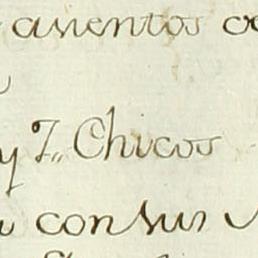 asientos
y 7,, Chicos
con sus